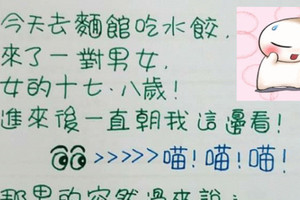 今天去麵館吃水餃,
來了一對男女,
女的十七、八歲!
進來後一直朝我這邊看!
>>>>>喵!喵!喵!
那男的突然過來說: